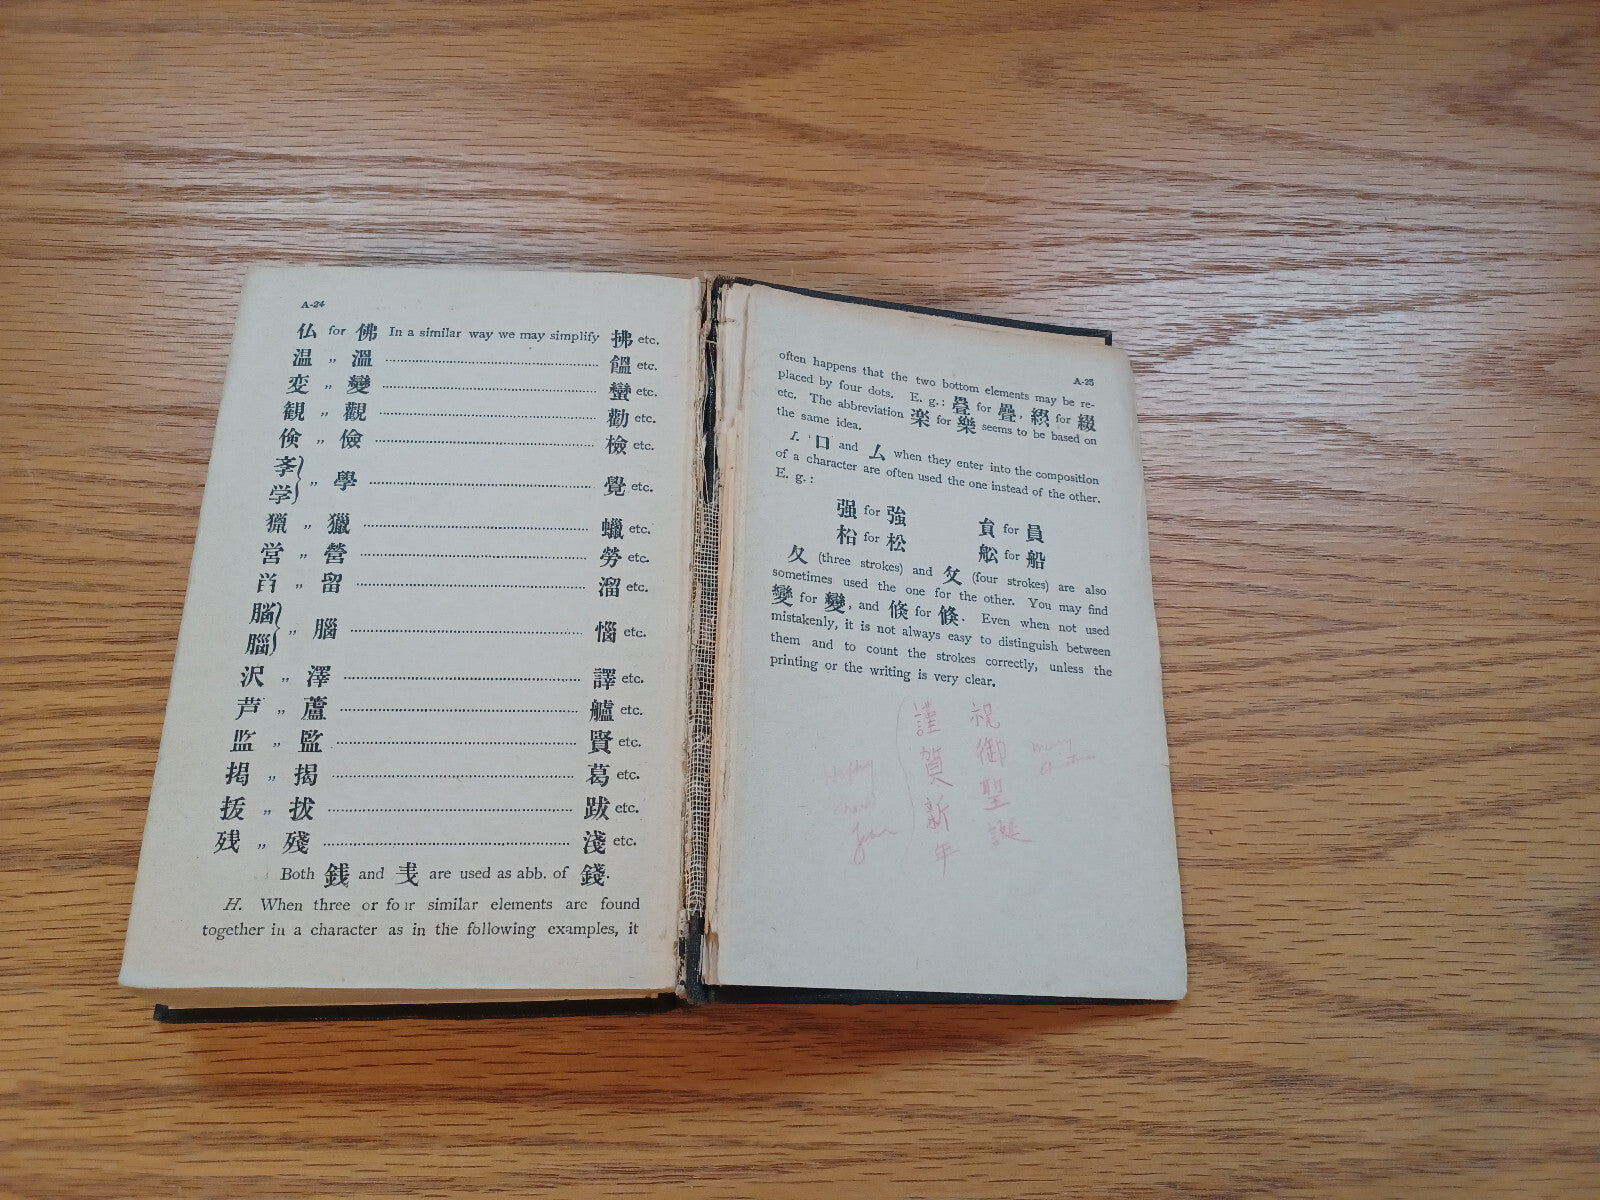 A-24
仏 for 佛 In a similar way we may simplify 拂 etc.
温 〃 溫 饂 etc.
変 〃 變 蠻 etc.
観 〃 觀 勸 etc.
倹 〃 儉 檢 etc.
斈
学 〃 學 覺 etc.
猟 〃 獵 蠟 etc.
営 〃 營 勞 etc.
〃 留 溜 etc.
脳
〃 腦 惱 etc.
沢 〃 澤 譯 etc.
芦 〃 蘆 艫 etc.
〃 監 賢 etc.
掲 〃 揭 葛 etc.
抜 〃 拔 跋 etc.
残 〃 殘 淺 etc.
Both 銭 and are used as abb. of 錢.
H. When three or four similar elements are found
together in a character as in the following examples, it
A-25
often happens that the two bottom elements may be re-
placed by four dots. E. g.: for 疊, for 綴
etc. The abbreviation 楽 for 樂 seems to be based on
the same idea.
I. 口 and ム when they enter into the composition
of a character are often used the one instead of the other.
E. g.:
强 for 強 貟 for 員
枱 for 松 舩 for 船
夂 (three strokes) and 攵 (four strokes) are also
sometimes used the one for the other. You may find
變 for 變, and 倏 for 倏. Even when not used
mistakenly, it is not always easy to distinguish between
them and to count the strokes correctly, unless the
printing or the writing is very clear.
祝御聖誕
merry
謹賀新年
Happy
new